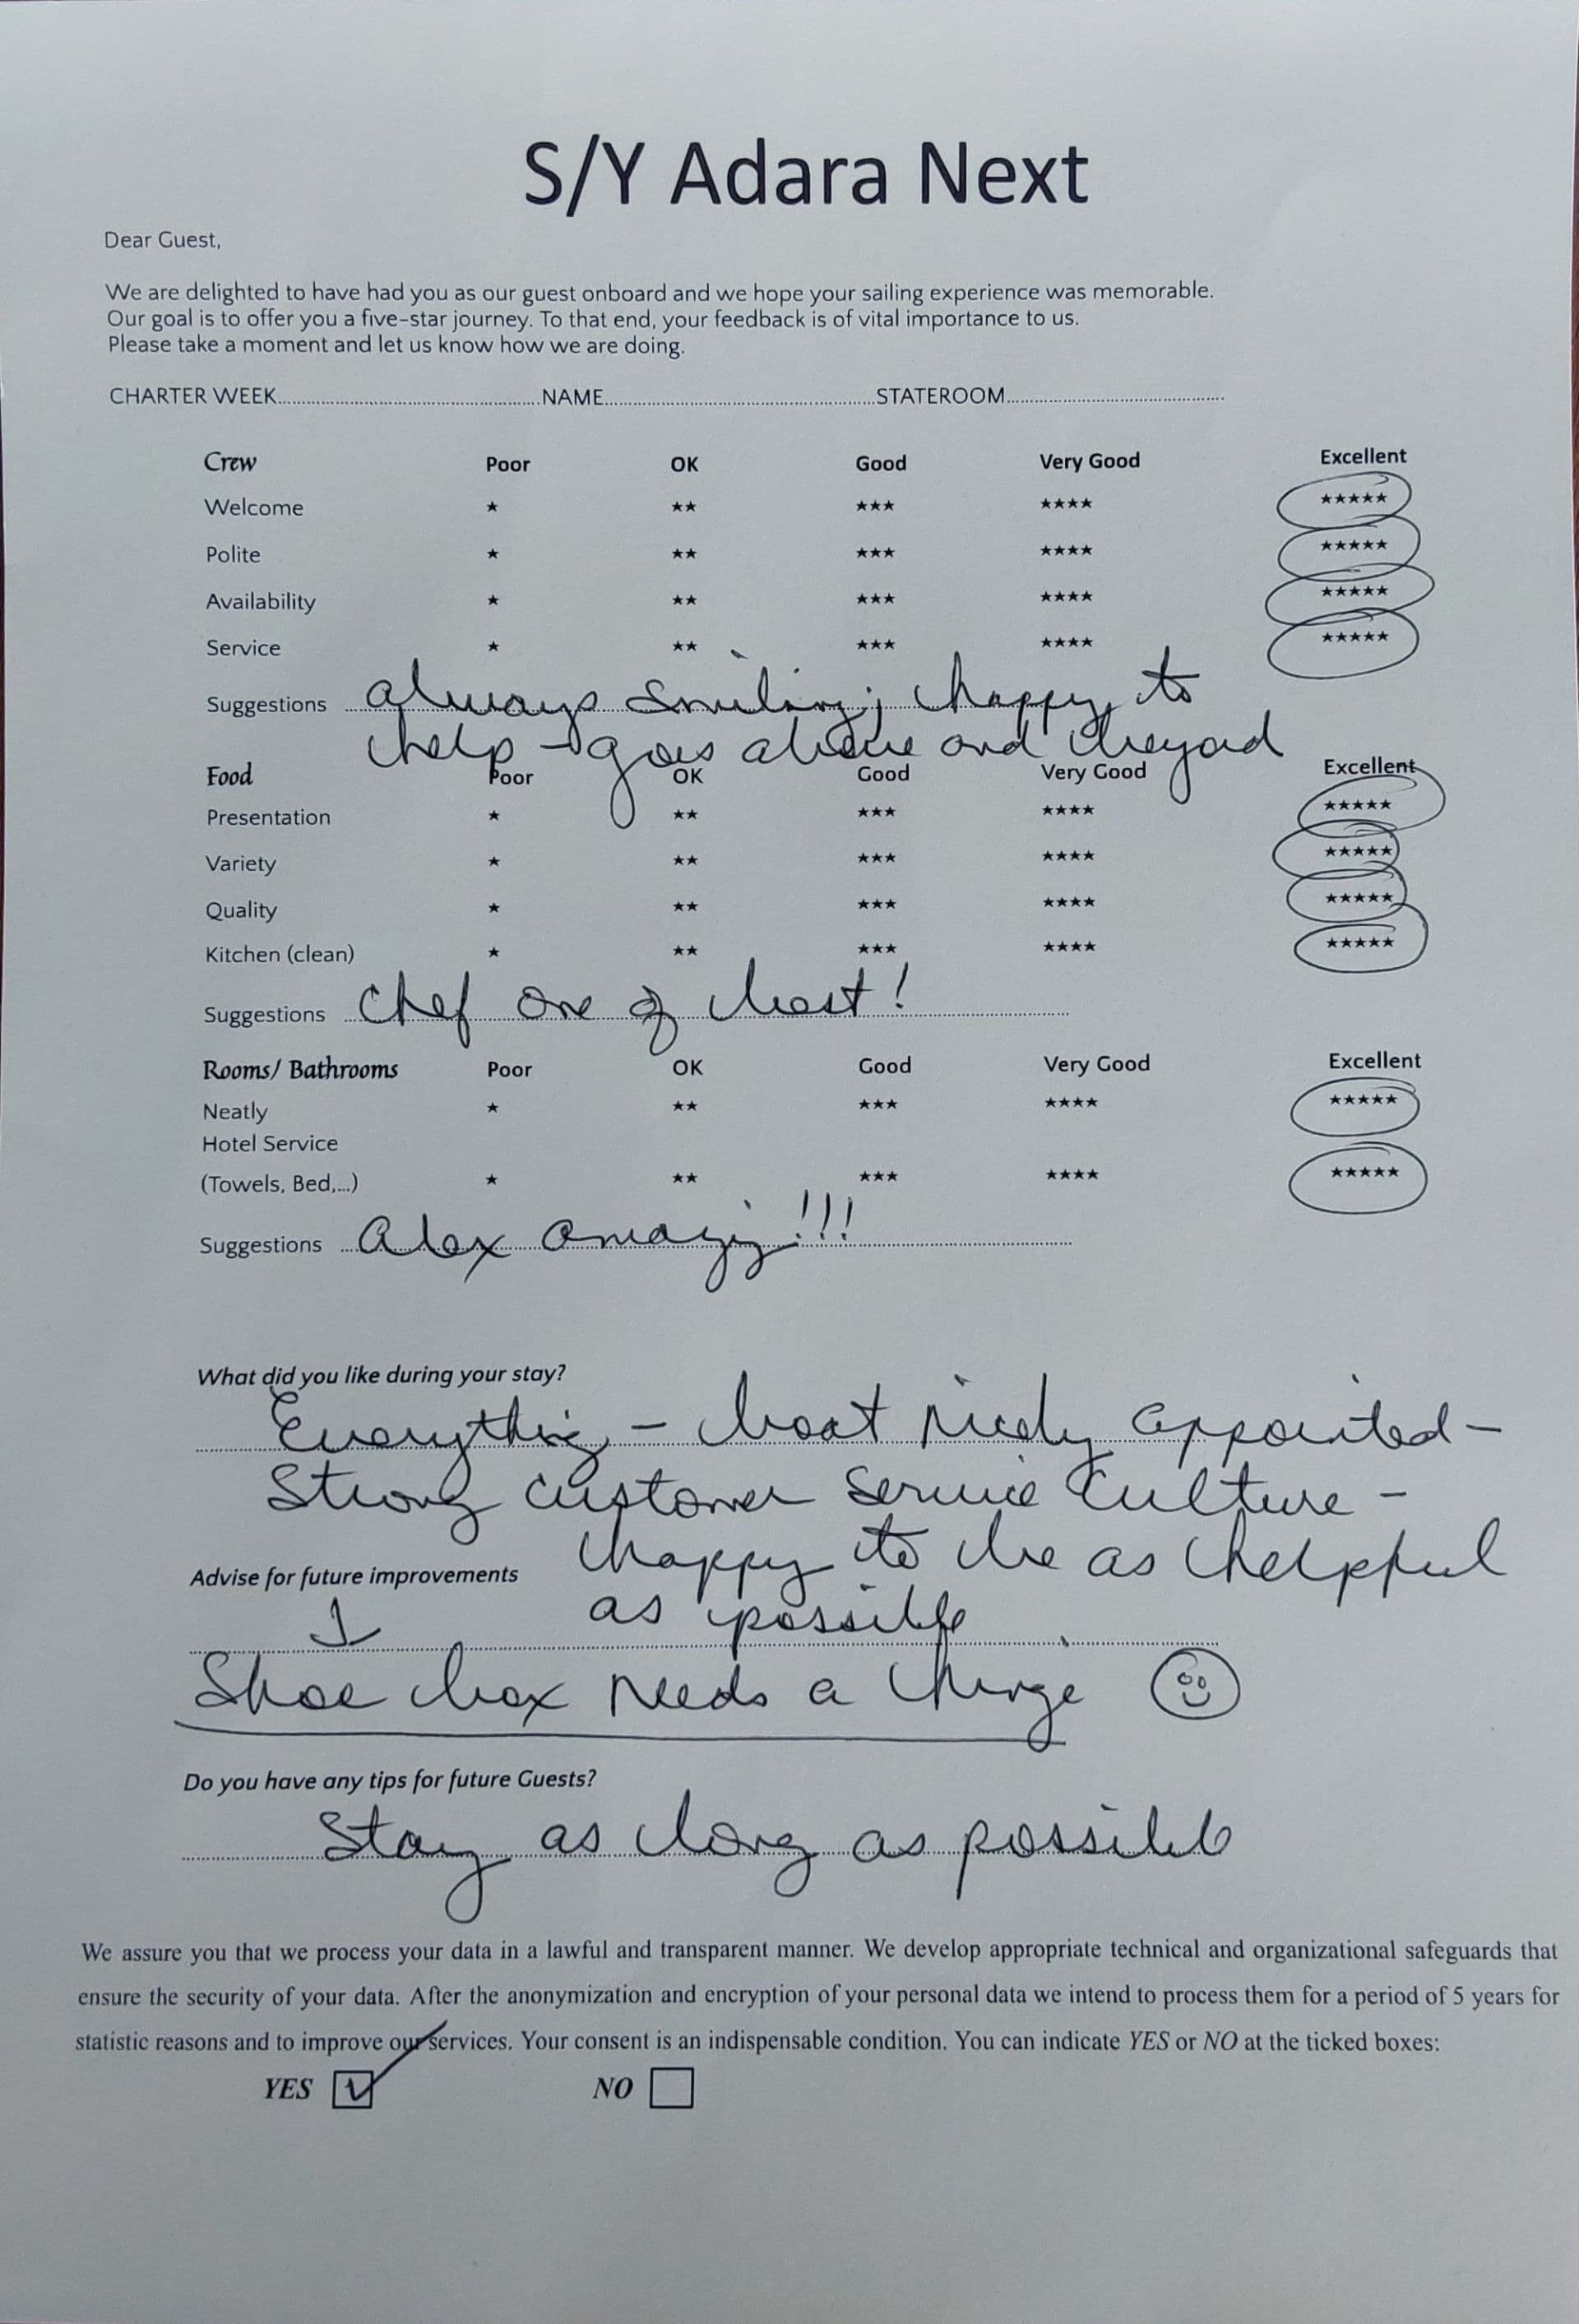 S/Y Adara Next
Dear Guest,
We are delighted to have had you as our guest onboard and we hope your sailing experience was memorable.
Our goal is to offer you a five-star journey. To that end, your feedback is of vital importance to us.
Please take a moment and let us know how we are doing.
CHARTER WEEK..............................NAME..............................STATEROOM..............................
Crew Poor OK Good Very Good Excellent
Welcome ★ ★★ ★★★ ★★★★ ★★★★★
Polite ★ ★★ ★★★ ★★★★ ★★★★★
Availability ★ ★★ ★★★ ★★★★ ★★★★★
Service ★ ★★ ★★★ ★★★★ ★★★★★
Suggestions always smiling; happy to
help - goes above and beyond
Food Poor OK Good Very Good Excellent
Presentation ★ ★★ ★★★ ★★★★ ★★★★★
Variety ★ ★★ ★★★ ★★★★ ★★★★★
Quality ★ ★★ ★★★ ★★★★ ★★★★★
Kitchen (clean) ★ ★★ ★★★ ★★★★ ★★★★★
Suggestions Chef one of best!
Rooms/ Bathrooms Poor OK Good Very Good Excellent
Neatly ★ ★★ ★★★ ★★★★ ★★★★★
Hotel Service
(Towels, Bed,...) ★ ★★ ★★★ ★★★★ ★★★★★
Suggestions Alex amazing!!!
What did you like during your stay?
Everything - boat nicely appointed -
Strong customer service culture -
happy to be as helpful
Advise for future improvements
as possible
Shoe box needs a hinge
Do you have any tips for future Guests?
Stay as long as possible
We assure you that we process your data in a lawful and transparent manner. We develop appropriate technical and organizational safeguards that
ensure the security of your data. After the anonymization and encryption of your personal data we intend to process them for a period of 5 years for
statistic reasons and to improve our services. Your consent is an indispensable condition. You can indicate YES or NO at the ticked boxes:
YES ☑ NO ☐